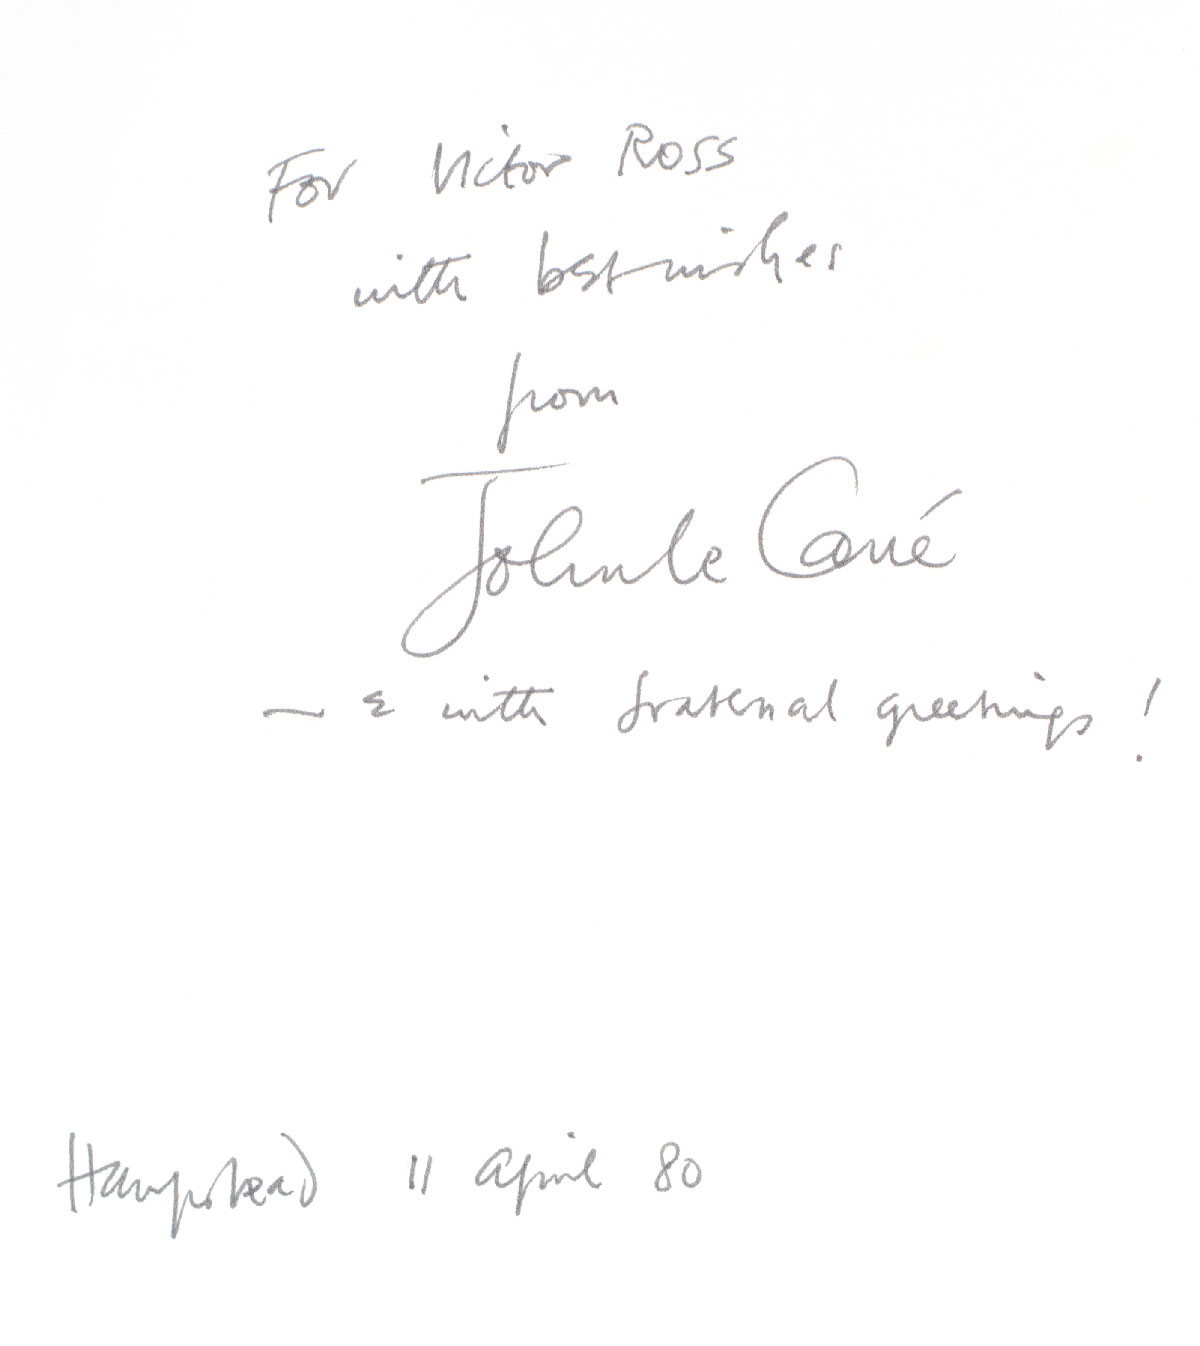 For Victor Ross
with best wishes
from
John le Carré
— & with fraternal greetings!
Hampstead 11 April 80